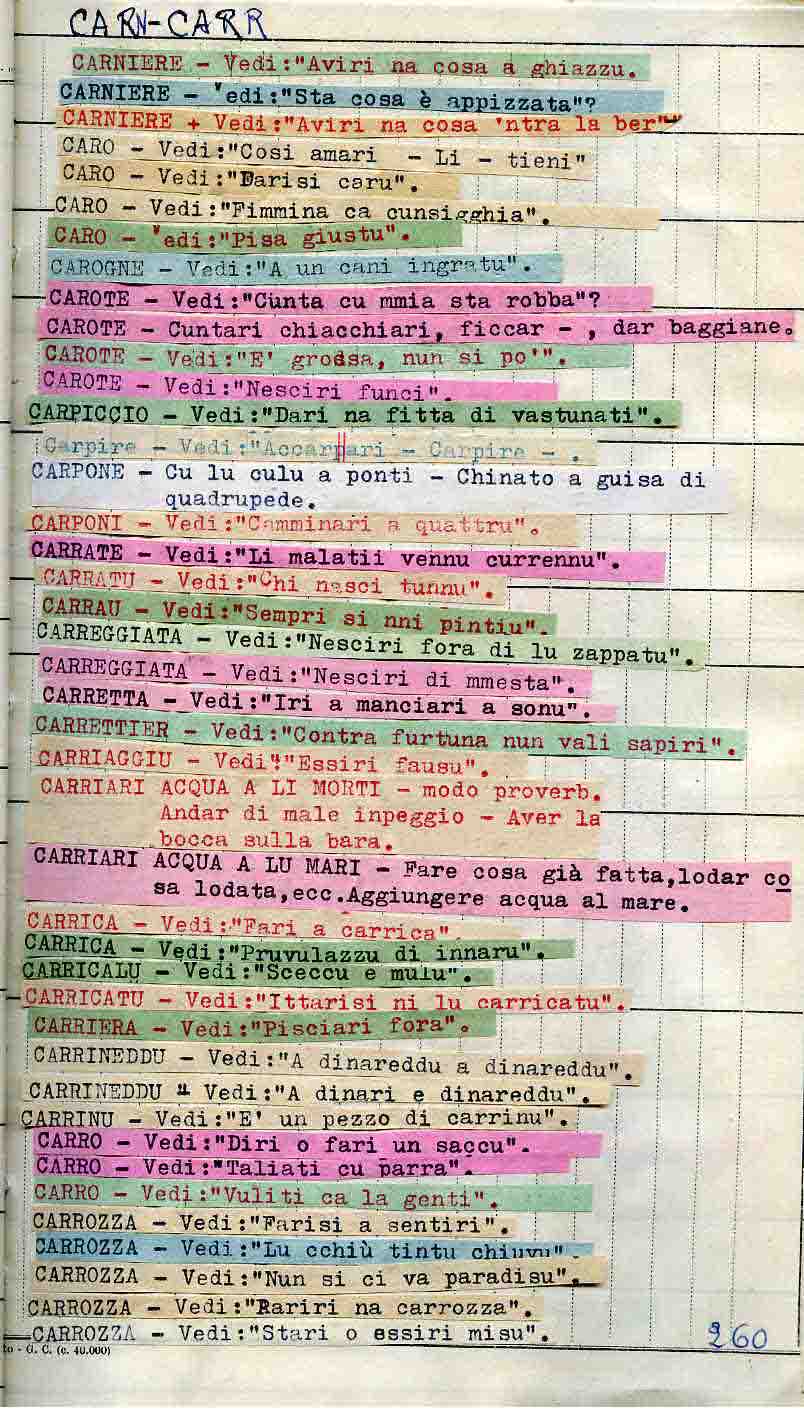 CARN-CARR
CARNIERE - Vedi:"Aviri na cosa a ghiazzu.
CARNIERE - "edi:"Sta cosa è appizzata"?
CARNIERE + Vedi:"Aviri na cosa 'ntra la ber"
CARO - Vedi:"Cosi amari - Li - tieni"
CARO - Vedi:"Darisi caru".
CARO - Vedi:"Fimmina ca cunsigghia".
CARO - "edi:"Pisa giustu".
CAROGNE - Vedi:"A un cani ingratu".
CAROTE - Vedi:"Cunta cu mmia sta robba"?
CAROTE - Cuntari chiacchiari, ficcar - , dar baggiane.
CAROTE - Vedi:"E' grossa, nun si po'".
CAROTE - Vedi:"Nesciri funci".
CARPICCIO - Vedi:"Dari na fitta di vastunati".
Carpire - Vedi:"Accarpari - Carpire - .
CARPONE - Cu lu culu a ponti - Chinato a guisa di
quadrupede.
CARPONI - Vedi:"Camminari a quattru".
CARRATE - Vedi:"Li malatii vennu currennu".
CARRATU - Vedi:"Chi nasci tunnu".
CARRAU - Vedi:"Sempri si nni pintiu".
CARREGGIATA - Vedi:"Nesciri fora di lu zappatu".
CARREGGIATA - Vedi:"Nesciri di mmesta".
CARRETTA - Vedi:"Iri a manciari a sonu".
CARRETTIER - Vedi:"Contra furtuna nun vali sapiri".
CARRIAGGIU - Vedi"Essiri fausu".
CARRIARI ACQUA A LI MORTI - modo proverb.
Andar di male inpeggio - Aver la
bocca sulla bara.
CARRIARI ACQUA A LU MARI - Fare cosa già fatta,lodar co
sa lodata,ecc.Aggiungere acqua al mare.
CARRICA - Vedi:"Fari a carrica"
CARRICA - Vedi:"Pruvulazzu di innaru".
CARRICALU - Vedi:"Sceccu e mulu".
CARRICATU - Vedi:"Ittarisi ni lu carricatu".
CARRIERA - Vedi:"Pisciari fora".
CARRINEDDU - Vedi:"A dinareddu a dinareddu".
CARRINEDDU " Vedi:"A dinari e dinareddu".
CARRINU - Vedi:"E' un pezzo di carrinu".
CARRO - Vedi:"Diri o fari un saccu".
CARRO - Vedi:"Taliati cu parra".
CARRO - Vedi:"Vuliti ca la genti".
CARROZZA - Vedi:"Farisi a sentiri".
CARROZZA - Vedi:"Lu cchiù tintu chiuvu".
CARROZZA - Vedi:"Nun si ci va paradisu".
CARROZZA - Vedi:"Rariri na carrozza".
CARROZZA - Vedi:"Stari o essiri misu".
260
to - G. C. (c. 40.000)